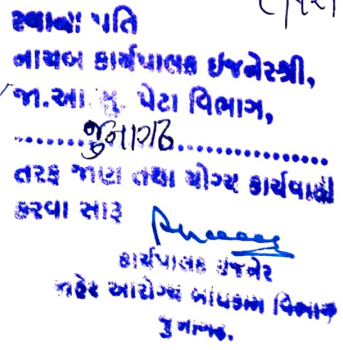 રવાના પ્રતિ
નાયબ કાર્યપાલક ઇજનેરશ્રી,
જા.આ. પેટા વિભાગ,
......જુનાગઢ..................
તરફ જાણ તથા યોગ્ય કાર્યવાહી
કરવા સારૂ
કાર્યપાલક ઇજનેર
જાહેર આરોગ્ય બાંધકામ વિભાગ
જુનાગઢ.